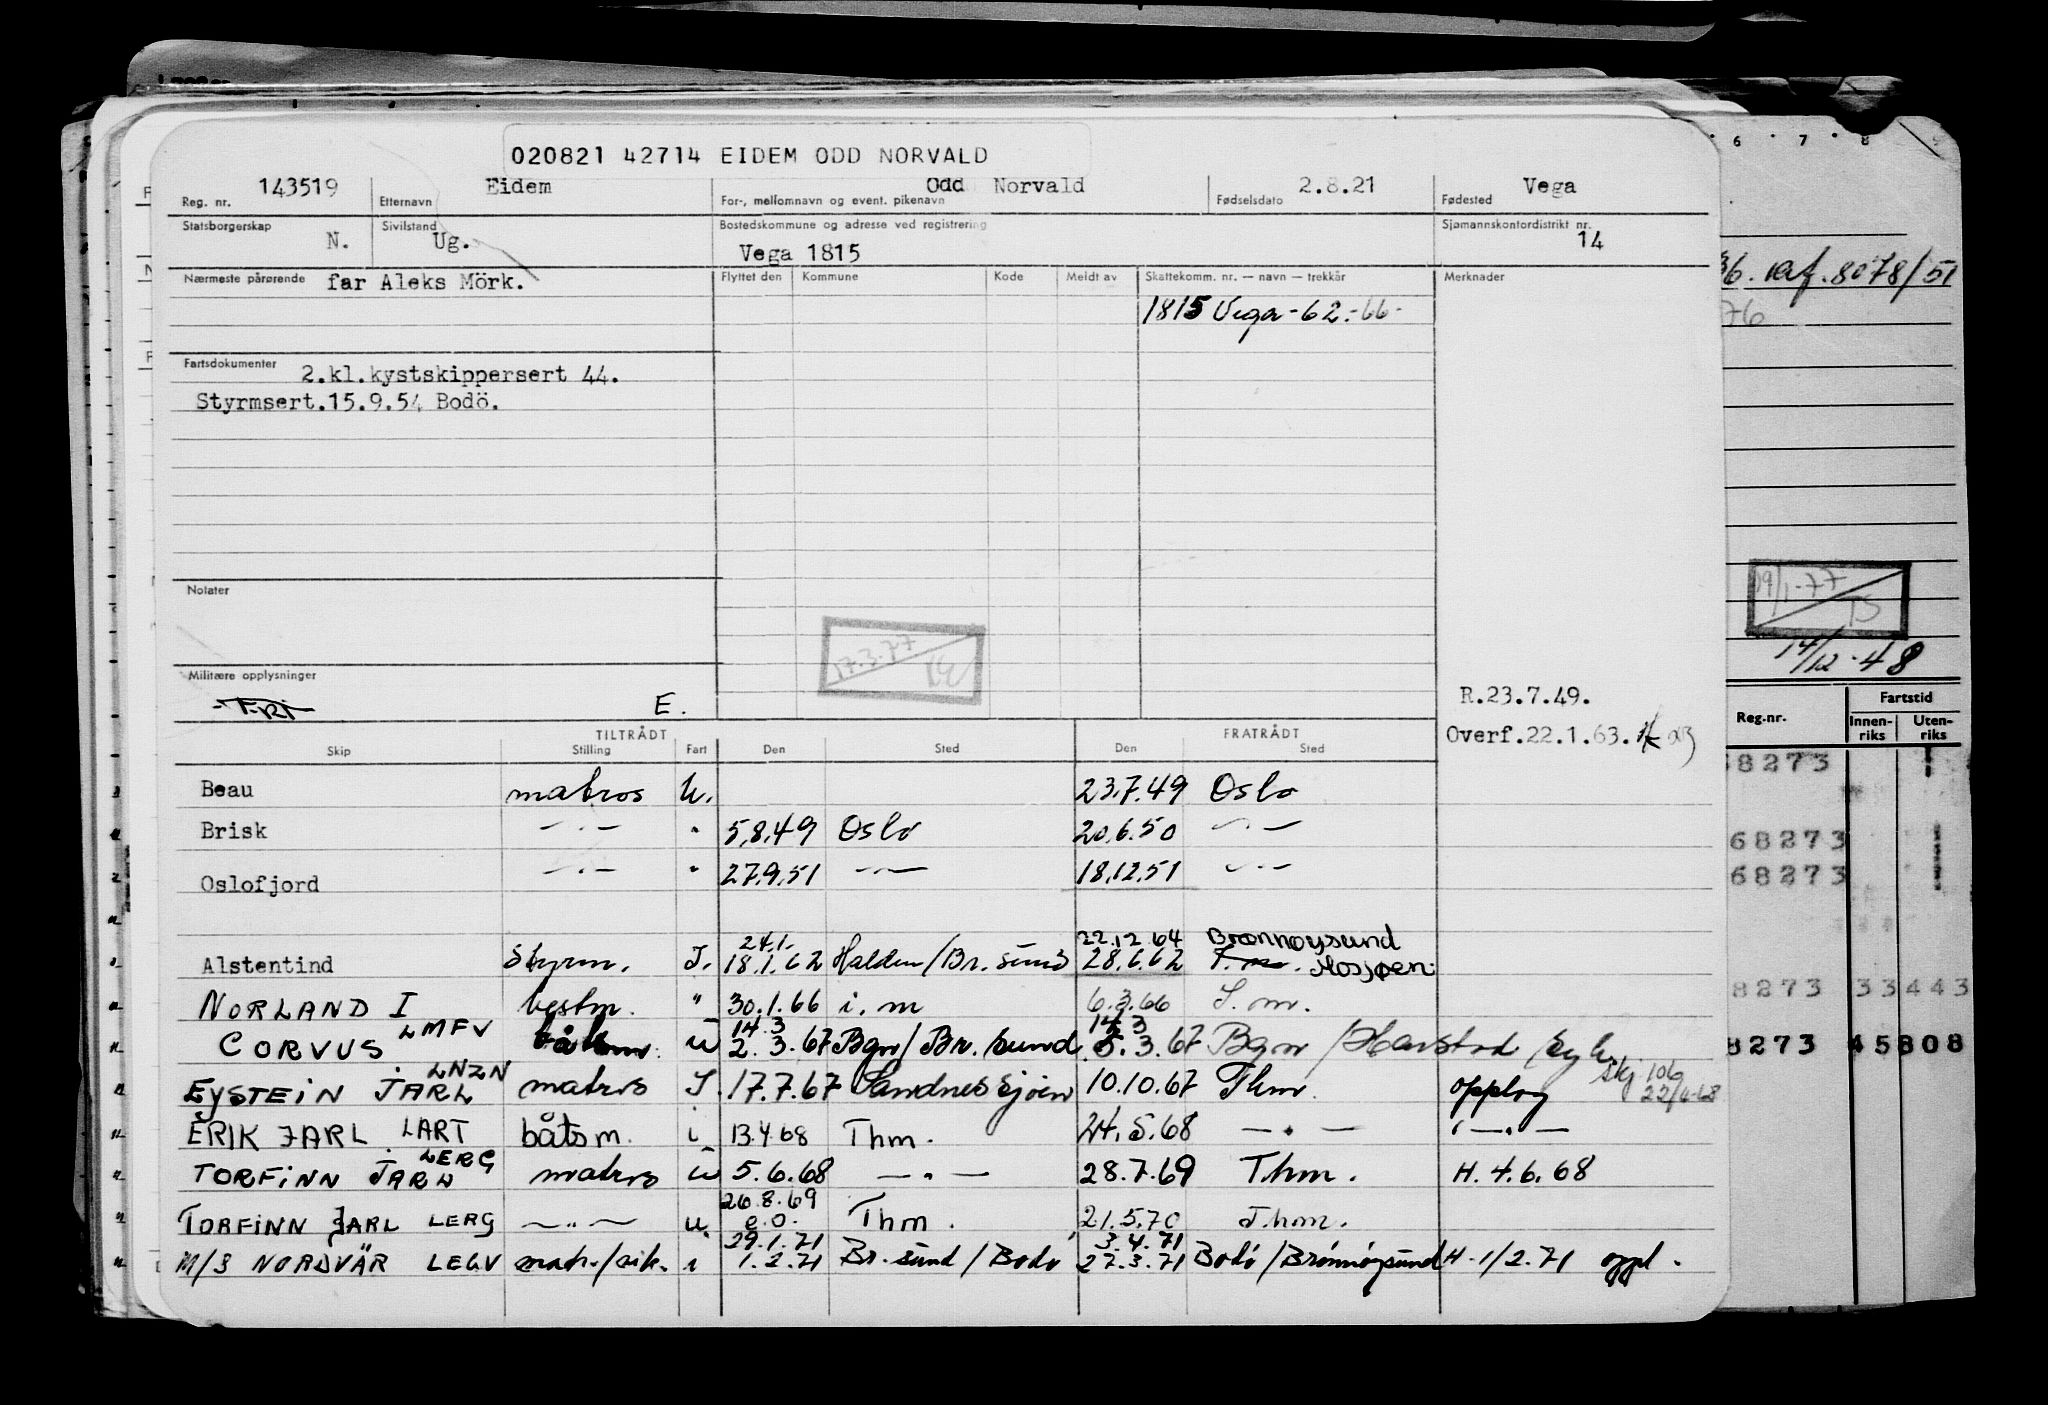 020821 42714 EIDEM ODD NORVALD
Reg. nr. 143519 Etternavn Eidem For-, mellomnavn og event. pikenavn Odd Norvald Fødselsdato 2.8.21 Fødested Vega
Statsborgerskap N. Sivilstand Ug. Bostedskommune og adresse ved registrering Vega 1815 Sjømannskontordistrikt nr. 14
Nærmeste pårørende far Aleks Mörk. Flyttet den Kommune Kode Meldt av Skattekomm. nr. — navn — trekkår Merknader
1815 Vega - 62.-66-
Fartsdokumenter 2.kl.kystskippersert 44.
Styrmsert.15.9.54 Bodö.
Notater
17.3.77
Militære opplysninger
E.
R.23.7.49.
Overf.22.1.63.
TILTRÅDT FRATRÅDT
Skip Stilling Fart Den Sted Den Sted
Beau matros U. 23.7.49 Oslo
Brisk —.— " 5.8.49 Oslo 20.6.50 —.—
Oslofjord —.— " 27.9.51 —.— 18.12.51 —.—
24.1. 22.12.64 Brønnøysund
Alstentind Styrm. I. 18.1.62 Halden/Br. sund 28.6.62 Mosjøen.
NORLAND I bestm. " 30.1.66 i. m 6.3.66 I. m.
LMFV 14.3 14.3
CORVUS u 2.3.67 Bgn/Br. sund 5.3.67 Bgn/Harstad/syk
LNZN
EYSTEIN JARL matros I. 17.7.67 Sandnessjøen 10.10.67 Thm. opplag skj 106
ERIK JARL LART båtsm. i 13.4.68 Thm. 24.5.68 —"— —"—
LERG
TORFINN JARL matros u 5.6.68 —"— 28.7.69 Thm. H. 4.6.68
26.8.69
TORFINN JARL LERG —"— u. e.o. Thm. 21.5.70 Thm.
29.1.71 3.4.71
M/S NORDVÄR LEGV matr./ i 1.2.71 Br. sund/Bodø 27.3.71 Bodø/Brønnøysund H. 1/2.71 oppl.
6 7 8
raf. 8078/51
76
19/1-77
TS
14/12-48
Reg.nr. Fartstid
Innen-riks Uten-riks
8273
68273
68273
8273 33443
8273 45808